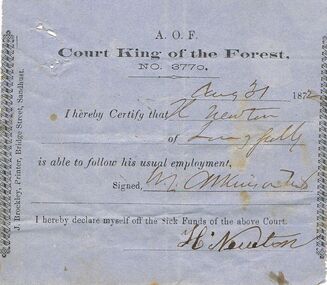 A. O. F.
Court King of the Forest,
NO. 3770.
Aug 31 1872
I hereby Certify that H Newton
of Long gully
is able to follow his usual employment,
Signed,
I hereby declare myself off the Sick Funds of the above Court.
H. Newton
J. Brockley, Printer, Bridge Street, Sandhurst.